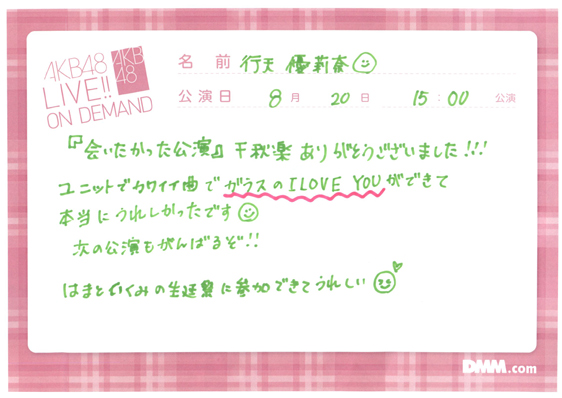 AKB48
LIVE!!
ON DEMAND
AKB
48
名前 行天 優莉奈
公演日 8月 20日 15:00 公演
『会いたかった公演』千秋楽ありがとうございました!!!
ユニットでカワイイ曲でガラスのI LOVE YOUができて
本当にうれしかったです
次の公演もがんばるぞ!!
はまとくくみの生誕祭に参加できてうれしい
DMM.com